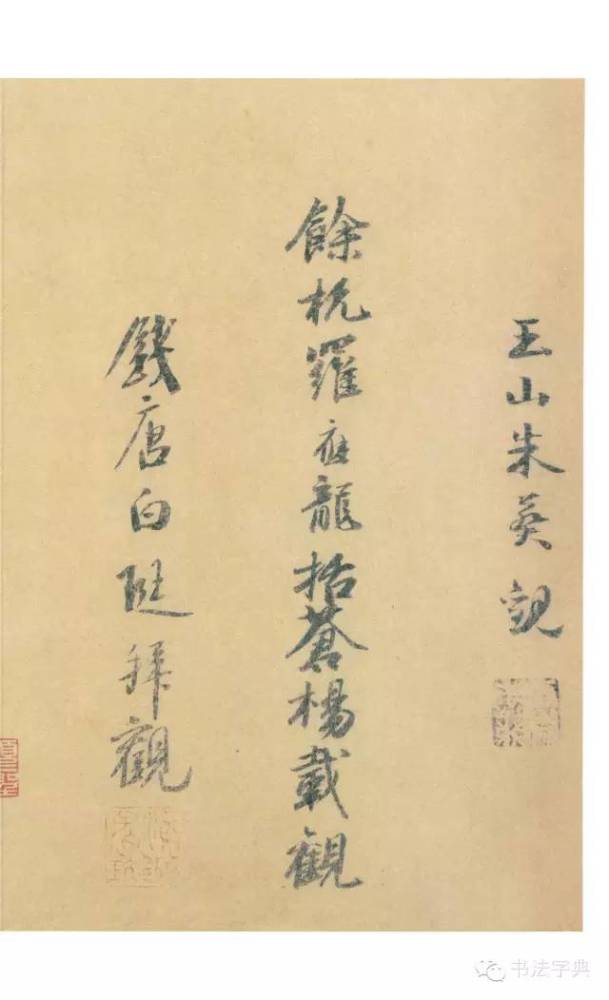 王山朱 觀
餘杭羅應龍括蒼楊載觀
錢唐白珽拜觀
书法字典